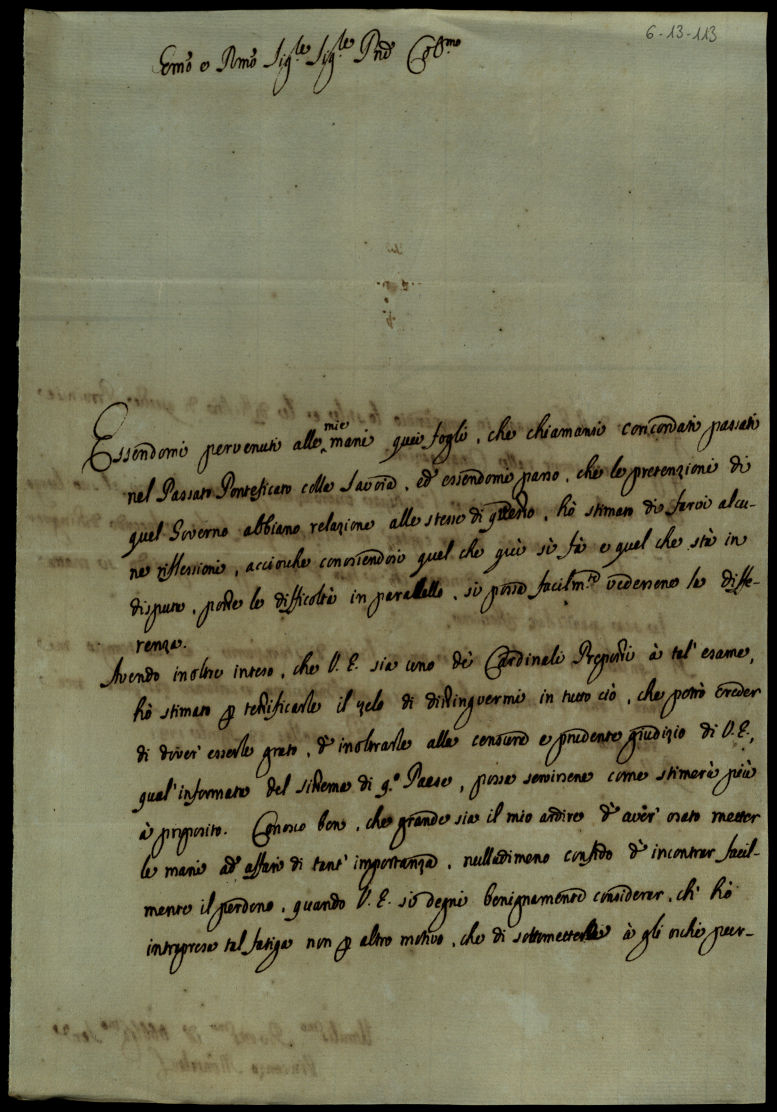 6-13-113
Emo e Rmo Sig.re Sig.re Pne Colmo
Essendomi pervenuti alle mie mani quei fogli, che chiamansi concordati passati
nel Passato Ponteficato colla Savoia, ed essendomi parso, che le pretenzioni di
quel Governo abbiano relazione alle stesse di questo, hò stimato di farvi alcu-
ne riflessioni, accioche conoscendosi quel che già si fà e quel che stà in
disputa, poste le difficoltà in parallelo, si possa facilmte vedersene la diffe-
renza.
Avendo inoltre inteso, che V. E. sia uno de' Cardinali Preposti à tal' esame,
hò stimato p testificarle il zelo di distinguermi in tutto ciò, che potrò creder
di dover' esserle grato, d' inoltrarle alla censura e prudente giudizio di V. E.,
qual' informata del sistema di q.o Paese, possa servirsene come stimerà più
à proposito. Conosco ben, che grande sia il mio ardire d' aver' osato metter
le mani ad' affari di tant' importanza, nulladimeno confido d' incontrar facil-
mente il perdono, quando V. E. si degni benignamente considerar, ch' hò
intrapresa tal fatiga non p altro motivo, che di sottometterla à gli occhi pur-